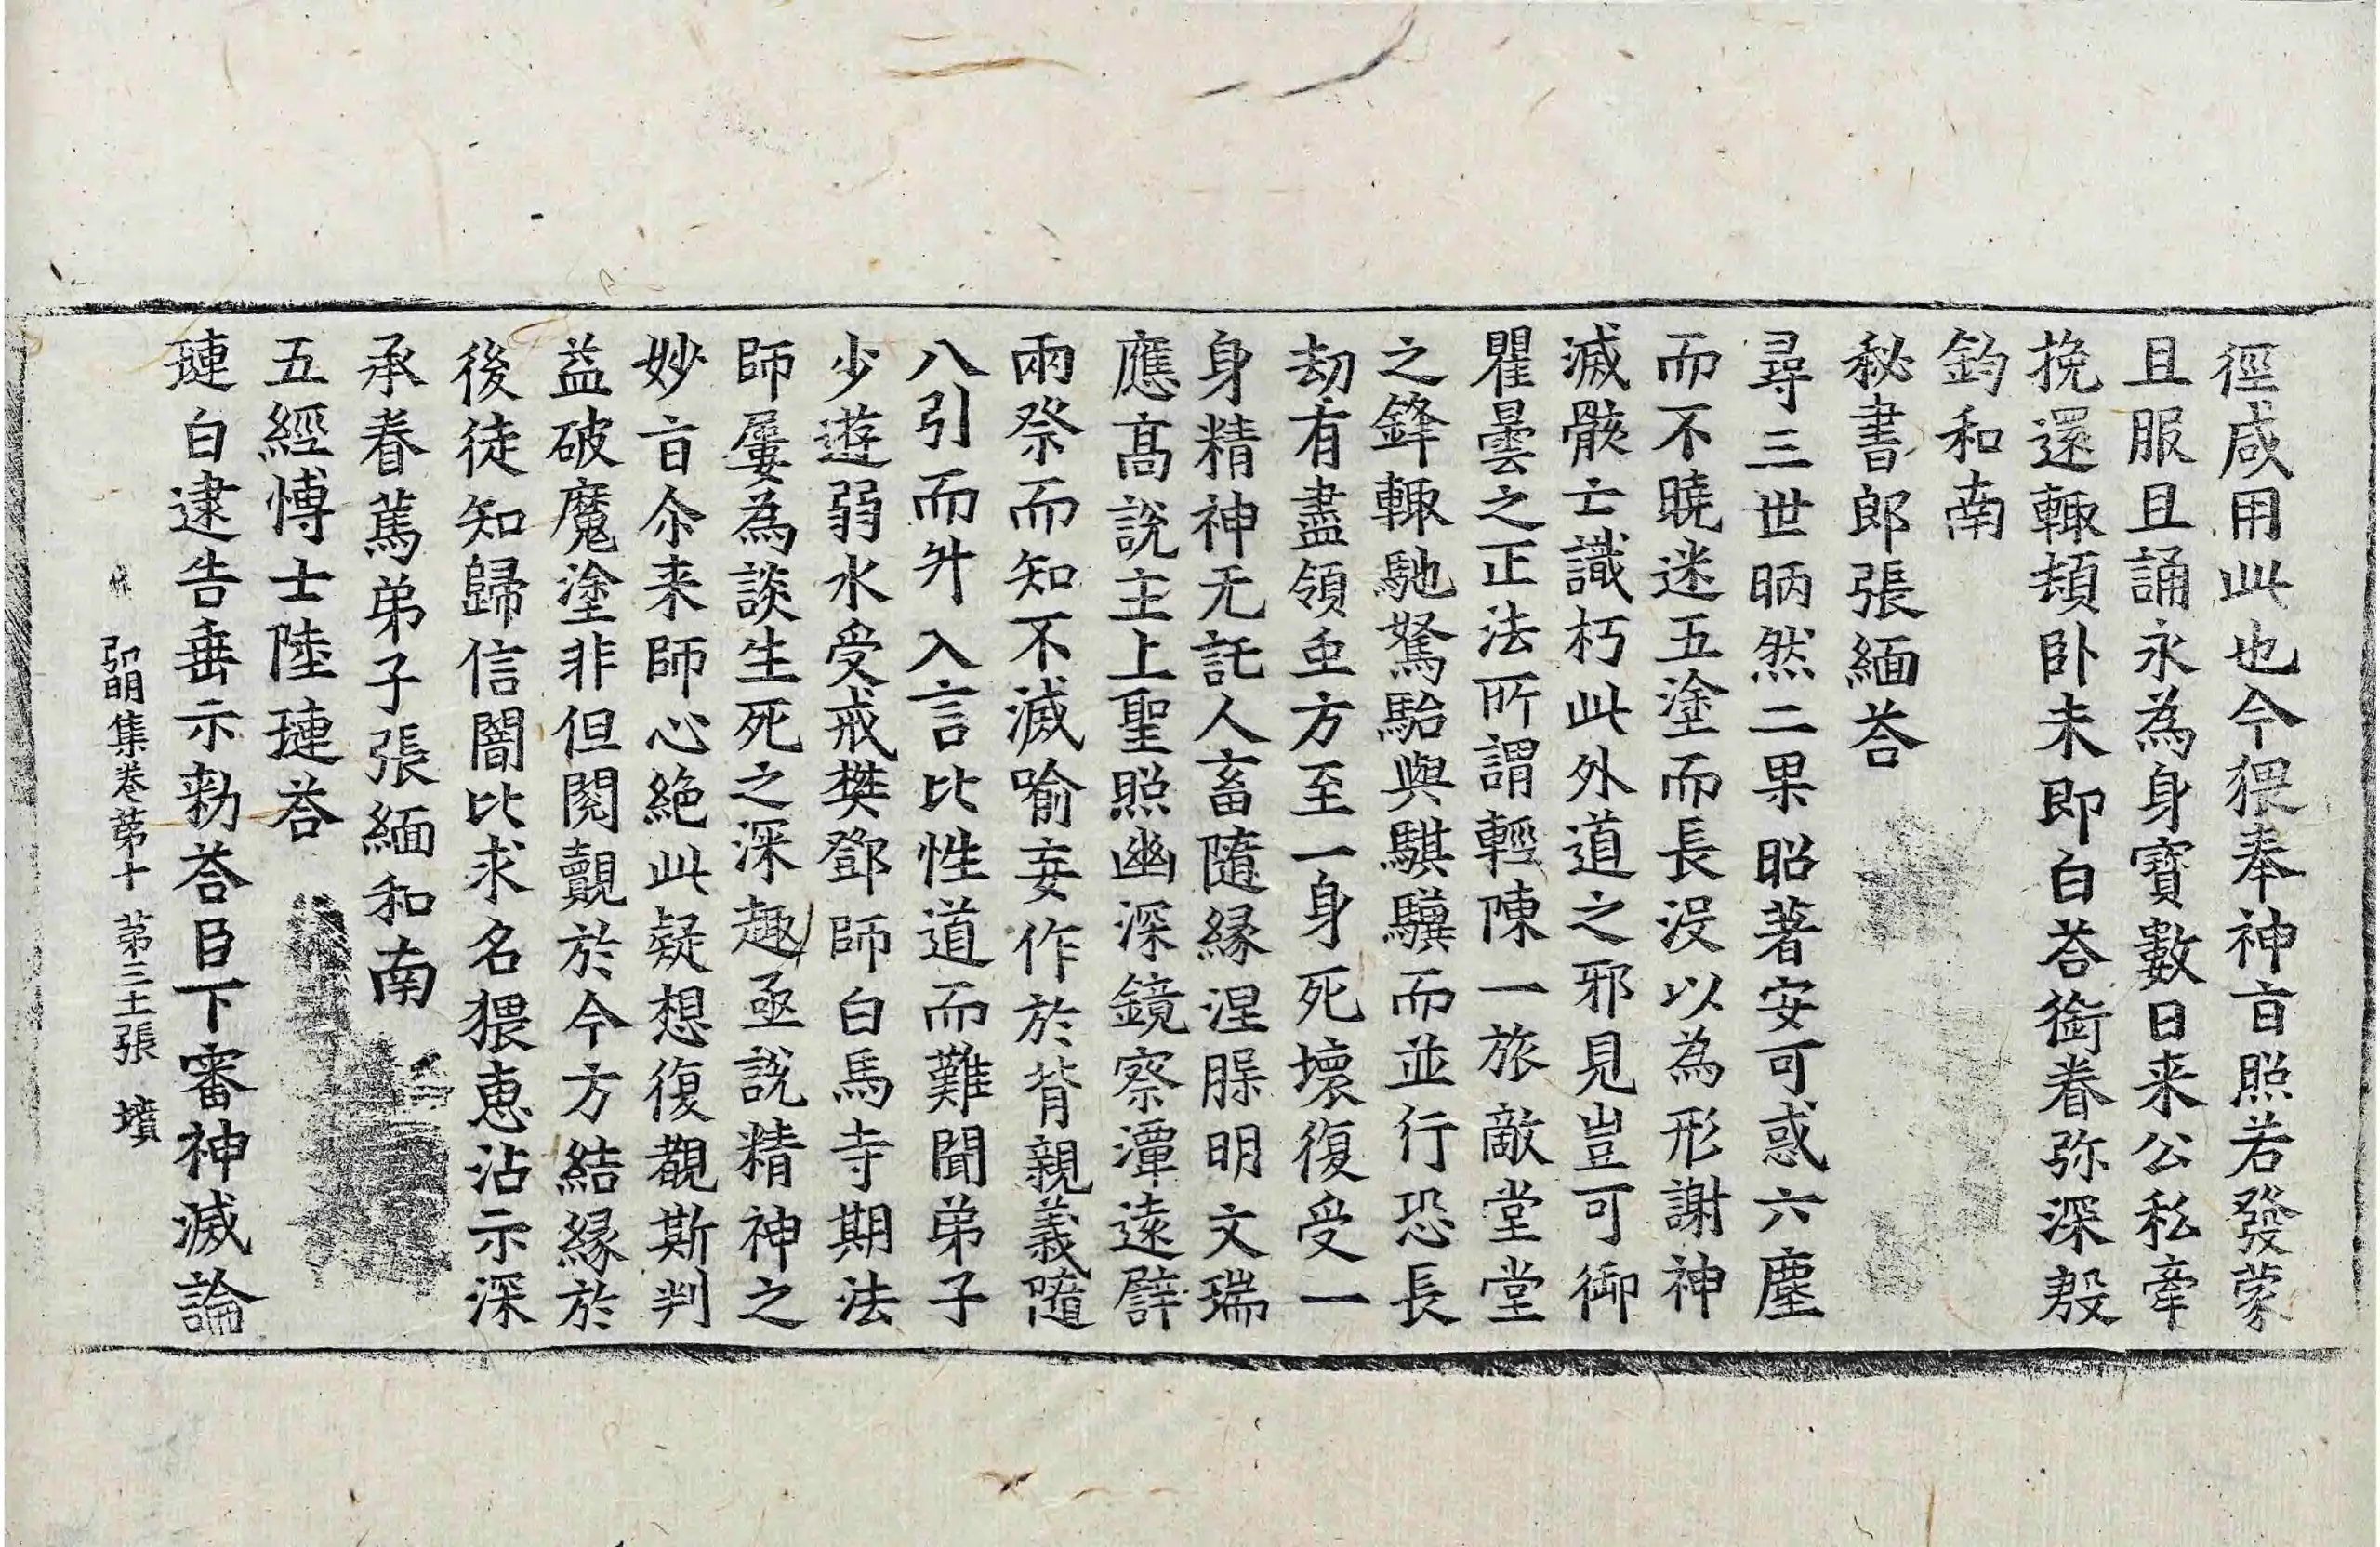 徑咸用此也今猥奉神㫖照若發蒙
且服且誦永為身寶數日来公私牽
挽還輙頓卧未即白荅銜眷弥深殷
鈞和南
秘書郎張緬荅
尋三世昞然二果昭著安可惑六塵
而不曉迷五塗而長没以為形謝神
滅骸亡識朽此外道之邪見豈可御
瞿曇之正法所謂輕陳一旅敵堂堂
之鋒輙馳駑駘與騏驥而並行恐長
劫有盡領𠱾方至一身死壞復受一
身精神无託人畜隨緣涅腺明文瑞
應高說主上聖照幽深鏡察潭遠譬
兩祭而知不滅喻妄作於背親義隨
八引而舛入言比性道而難聞弟子
少遊弱水受戒樊鄧師白馬寺期法
師屢為談生死之深趣亟說精神之
妙㫖尒来師心絶此疑想復覩斯判
益破魔塗非但閱覿於今方結緣於
後徒知歸信闇比求名猥惠沾示深
承眷篤弟子張緬和南
五經博士陸璉荅
璉白逮告垂示勑荅臣下審神滅論
弘明集卷苐十 苐三十張 墳